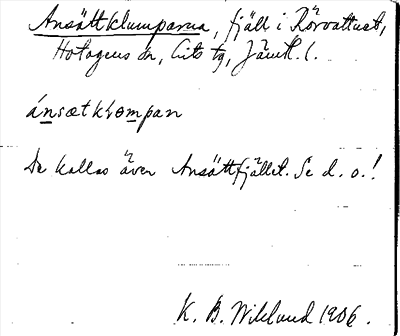 Ansättklumparna, fjäll i Rörvattnet,
Hotagens sn, Lits tg, Jämtl. l.
ánsætklompan
De kallas även Ansättfjället. Se d. o.!
K. B. Wiklund 1906.